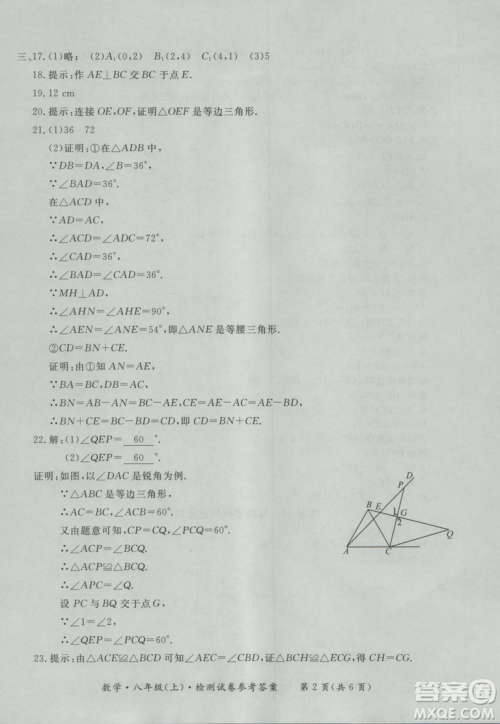 三、17.(1)略； (2)A₁(0,2) B₁(2,4) C₁(4,1) (3)5
18.提示:作AE⊥BC交BC于点E.
19.12 cm
20.提示:连接OE,OF,证明△OEF是等边三角形.
21.(1)36 72
(2)证明:①在△ADB中,
∵DB=DA,∠B=36°,
∴∠BAD=36°.
在△ACD中,
∵AD=AC,
∴∠ACD=∠ADC=72°,
∴∠CAD=36°.
∴∠BAD=∠CAD=36°.
∵MH⊥AD,
∴∠AHN=∠AHE=90°,
∴∠AEN=∠ANE=54°,即△ANE是等腰三角形.
②CD=BN+CE.
证明:由①知AN=AE,
又∵BA=BC,DB=AC,
∴BN=AB-AN=BC-AE,CE=AE-AC=AE-BD,
∴BN+CE=BC-BD=CD,即CD=BN+CE.
22.解:(1)∠QEP=60°.
(2)∠QEP=60°.
证明:如图,以∠DAC是锐角为例.
∵△ABC是等边三角形,
∴AC=BC,∠ACB=60°,
又由题意可知,CP=CQ,∠PCQ=60°.
∴∠ACP=∠BCQ.
∴△ACP≌△BCQ.
∴∠APC=∠Q.
设PC与BQ交于点G,
∵∠1=∠2,
∴∠QEP=∠PCQ=60°.
23.提示:由△ACE≌△BCD得∠CAE=∠CBD.
D
P
B E
1 G
2
Q
A C
数学·八年级(上)·检测试卷参考答案 第2页(共6页)
答案圈
MXQE.COM